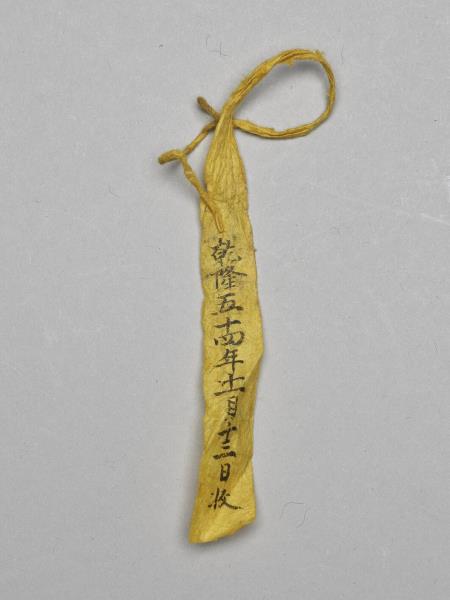 乾隆五十四年十一月十三日收